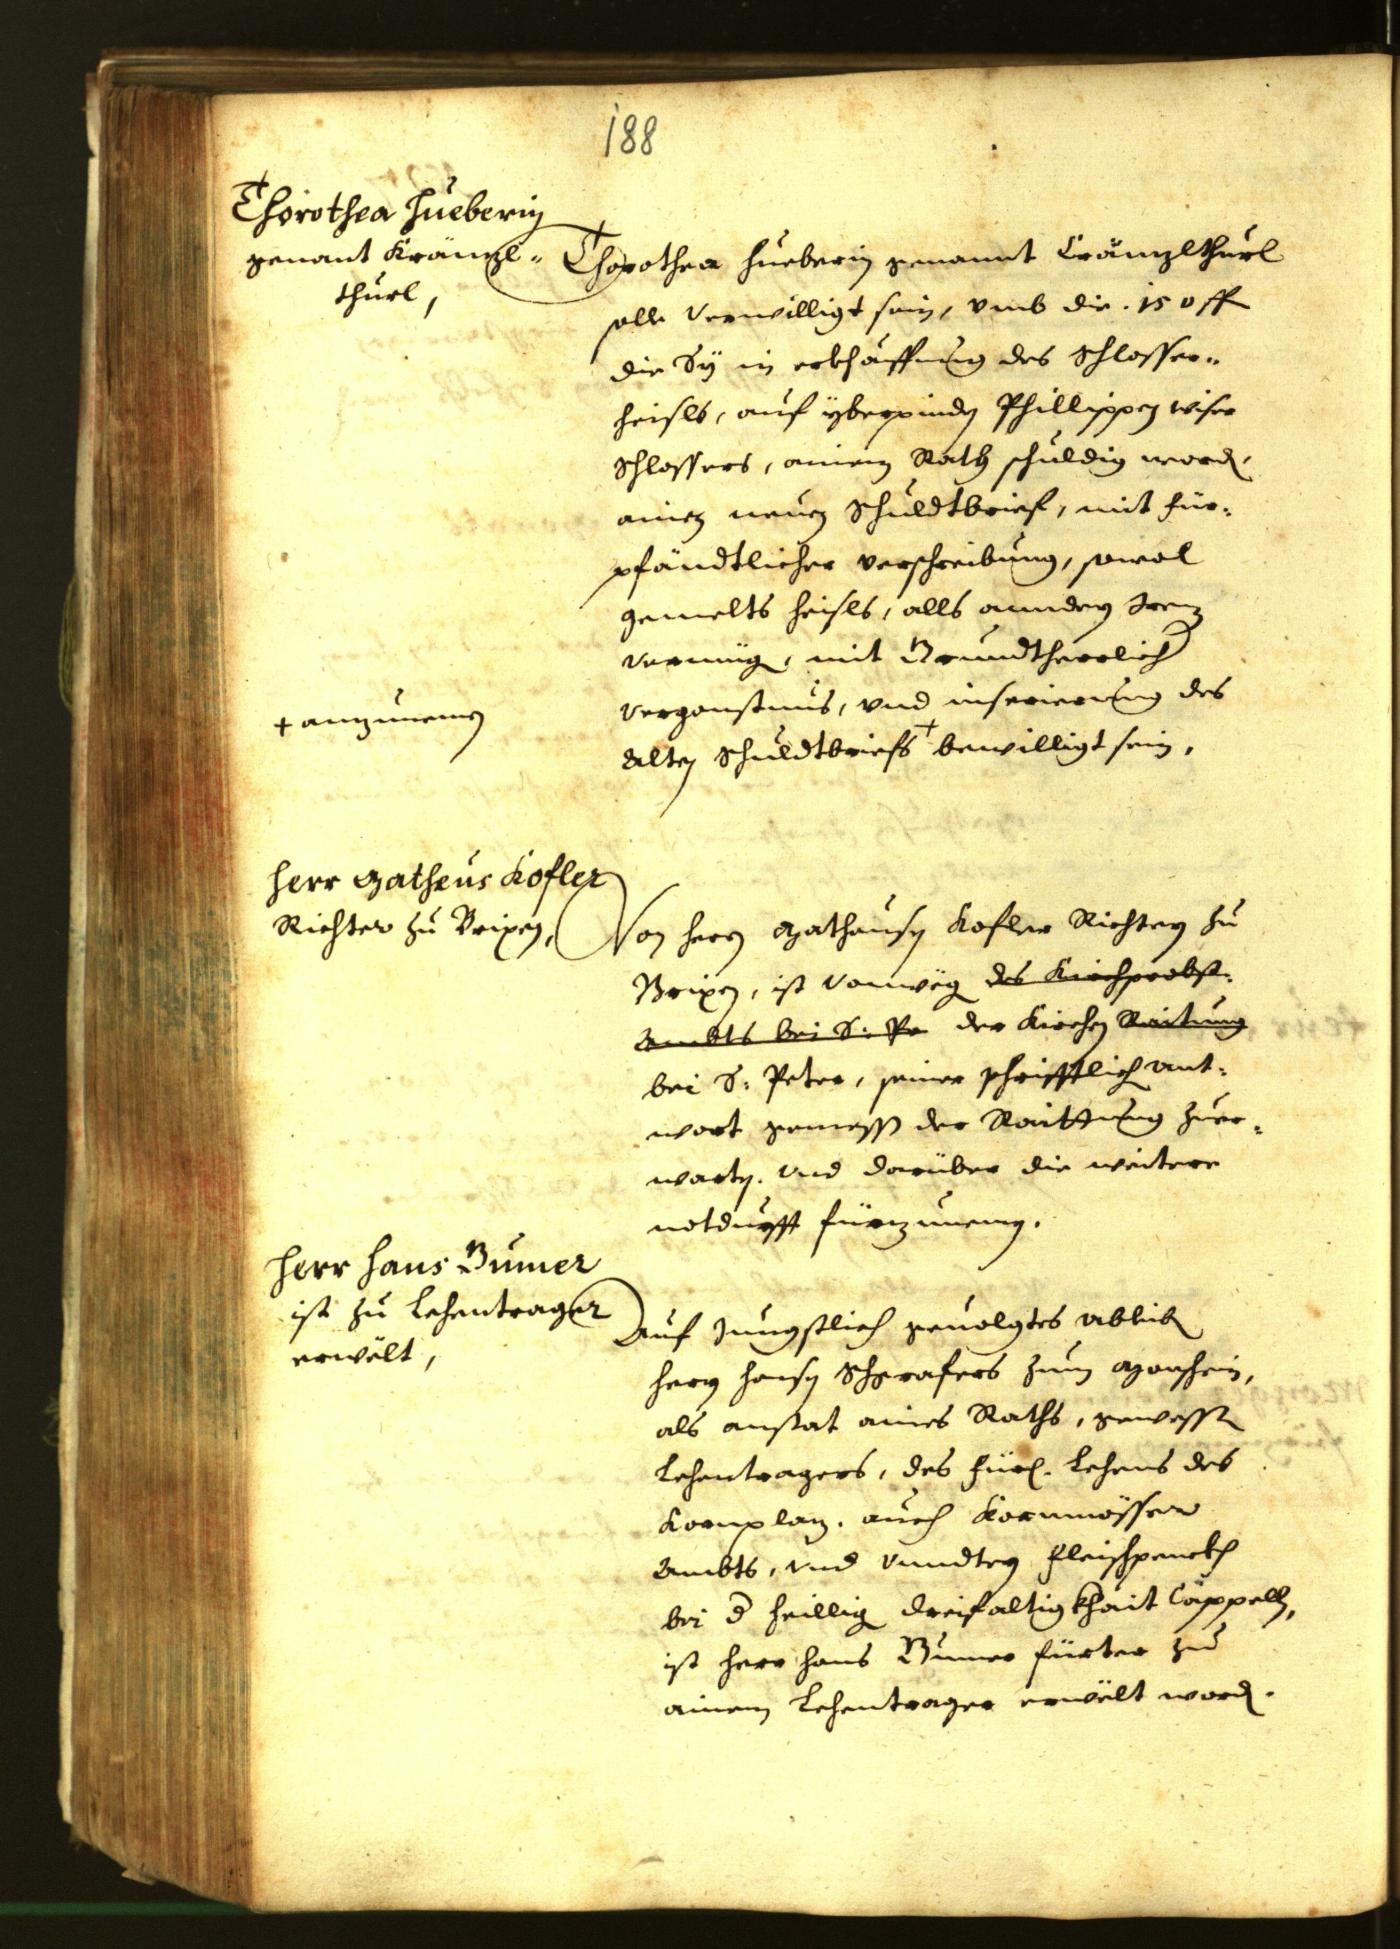 188
Thorothea Hueberin
genant Kränzl-
thurl,
Thorothea Hueberin genannt Cränzlthurl
solle verwilligt sein, vmb die .150 fl
die Sÿ in erkhauffung des Schlosser-
heisls, auf ÿberpinden Phillippen Wiser
Schlossers, ainem Rath schuldig worden,
ainen neuen Schuldtbrief, mit für-
pfändtlicher verschreibung, sowol
gemelts heisls, alls anndern Iren
vermüg, mit Grundtherrlicher
vergonstnus, vnd inserierung des
alten Schuldtbriefs + bewilligt sein,
+ anzunemen
Herr Matheus Kofler
Richter zu Brixen,
Von hern Mathausen Kofler Richtern zu
Brixen, ist vonweg des Kirchprobst-
Ambts bei S: Pe der Kirchen Raitung
bei S: Peter, seiner schrifftlichen ant-
wort gemess der Raittung zuer-
warten. vnd darüber die weitere
notdurfft fürzunemen.
Herr Hans Gumer
ist zu Lehentrager
erwölt,
Auf Jungstlich geuolgtes ableib
hern Hansen Schgrafers zum
als anstat aines Raths, gewessten
Lehentragers, des fürl. Lehens des
Kornplaz. auch Kornmösser
Ambts, vnd vnndtern fleischpenckh
bei der heillig dreifaltigkhait Cappelln,
ist herr Hans Gumer fürter zu
ainem Lehentrager erwölt worden.